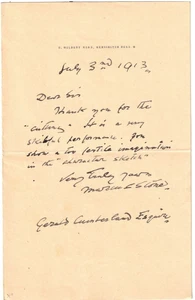 8, MELBURY ROAD, KENSINGTON ROAD W.
July 3nd 1913.
Dear Sir
Thank you for the
"cutting" It is a very
skilful performance. You
show a too fertile imagination
in the "character sketch"
Very truly yours
Marcus Stone
Gerald Cumberland Esquire